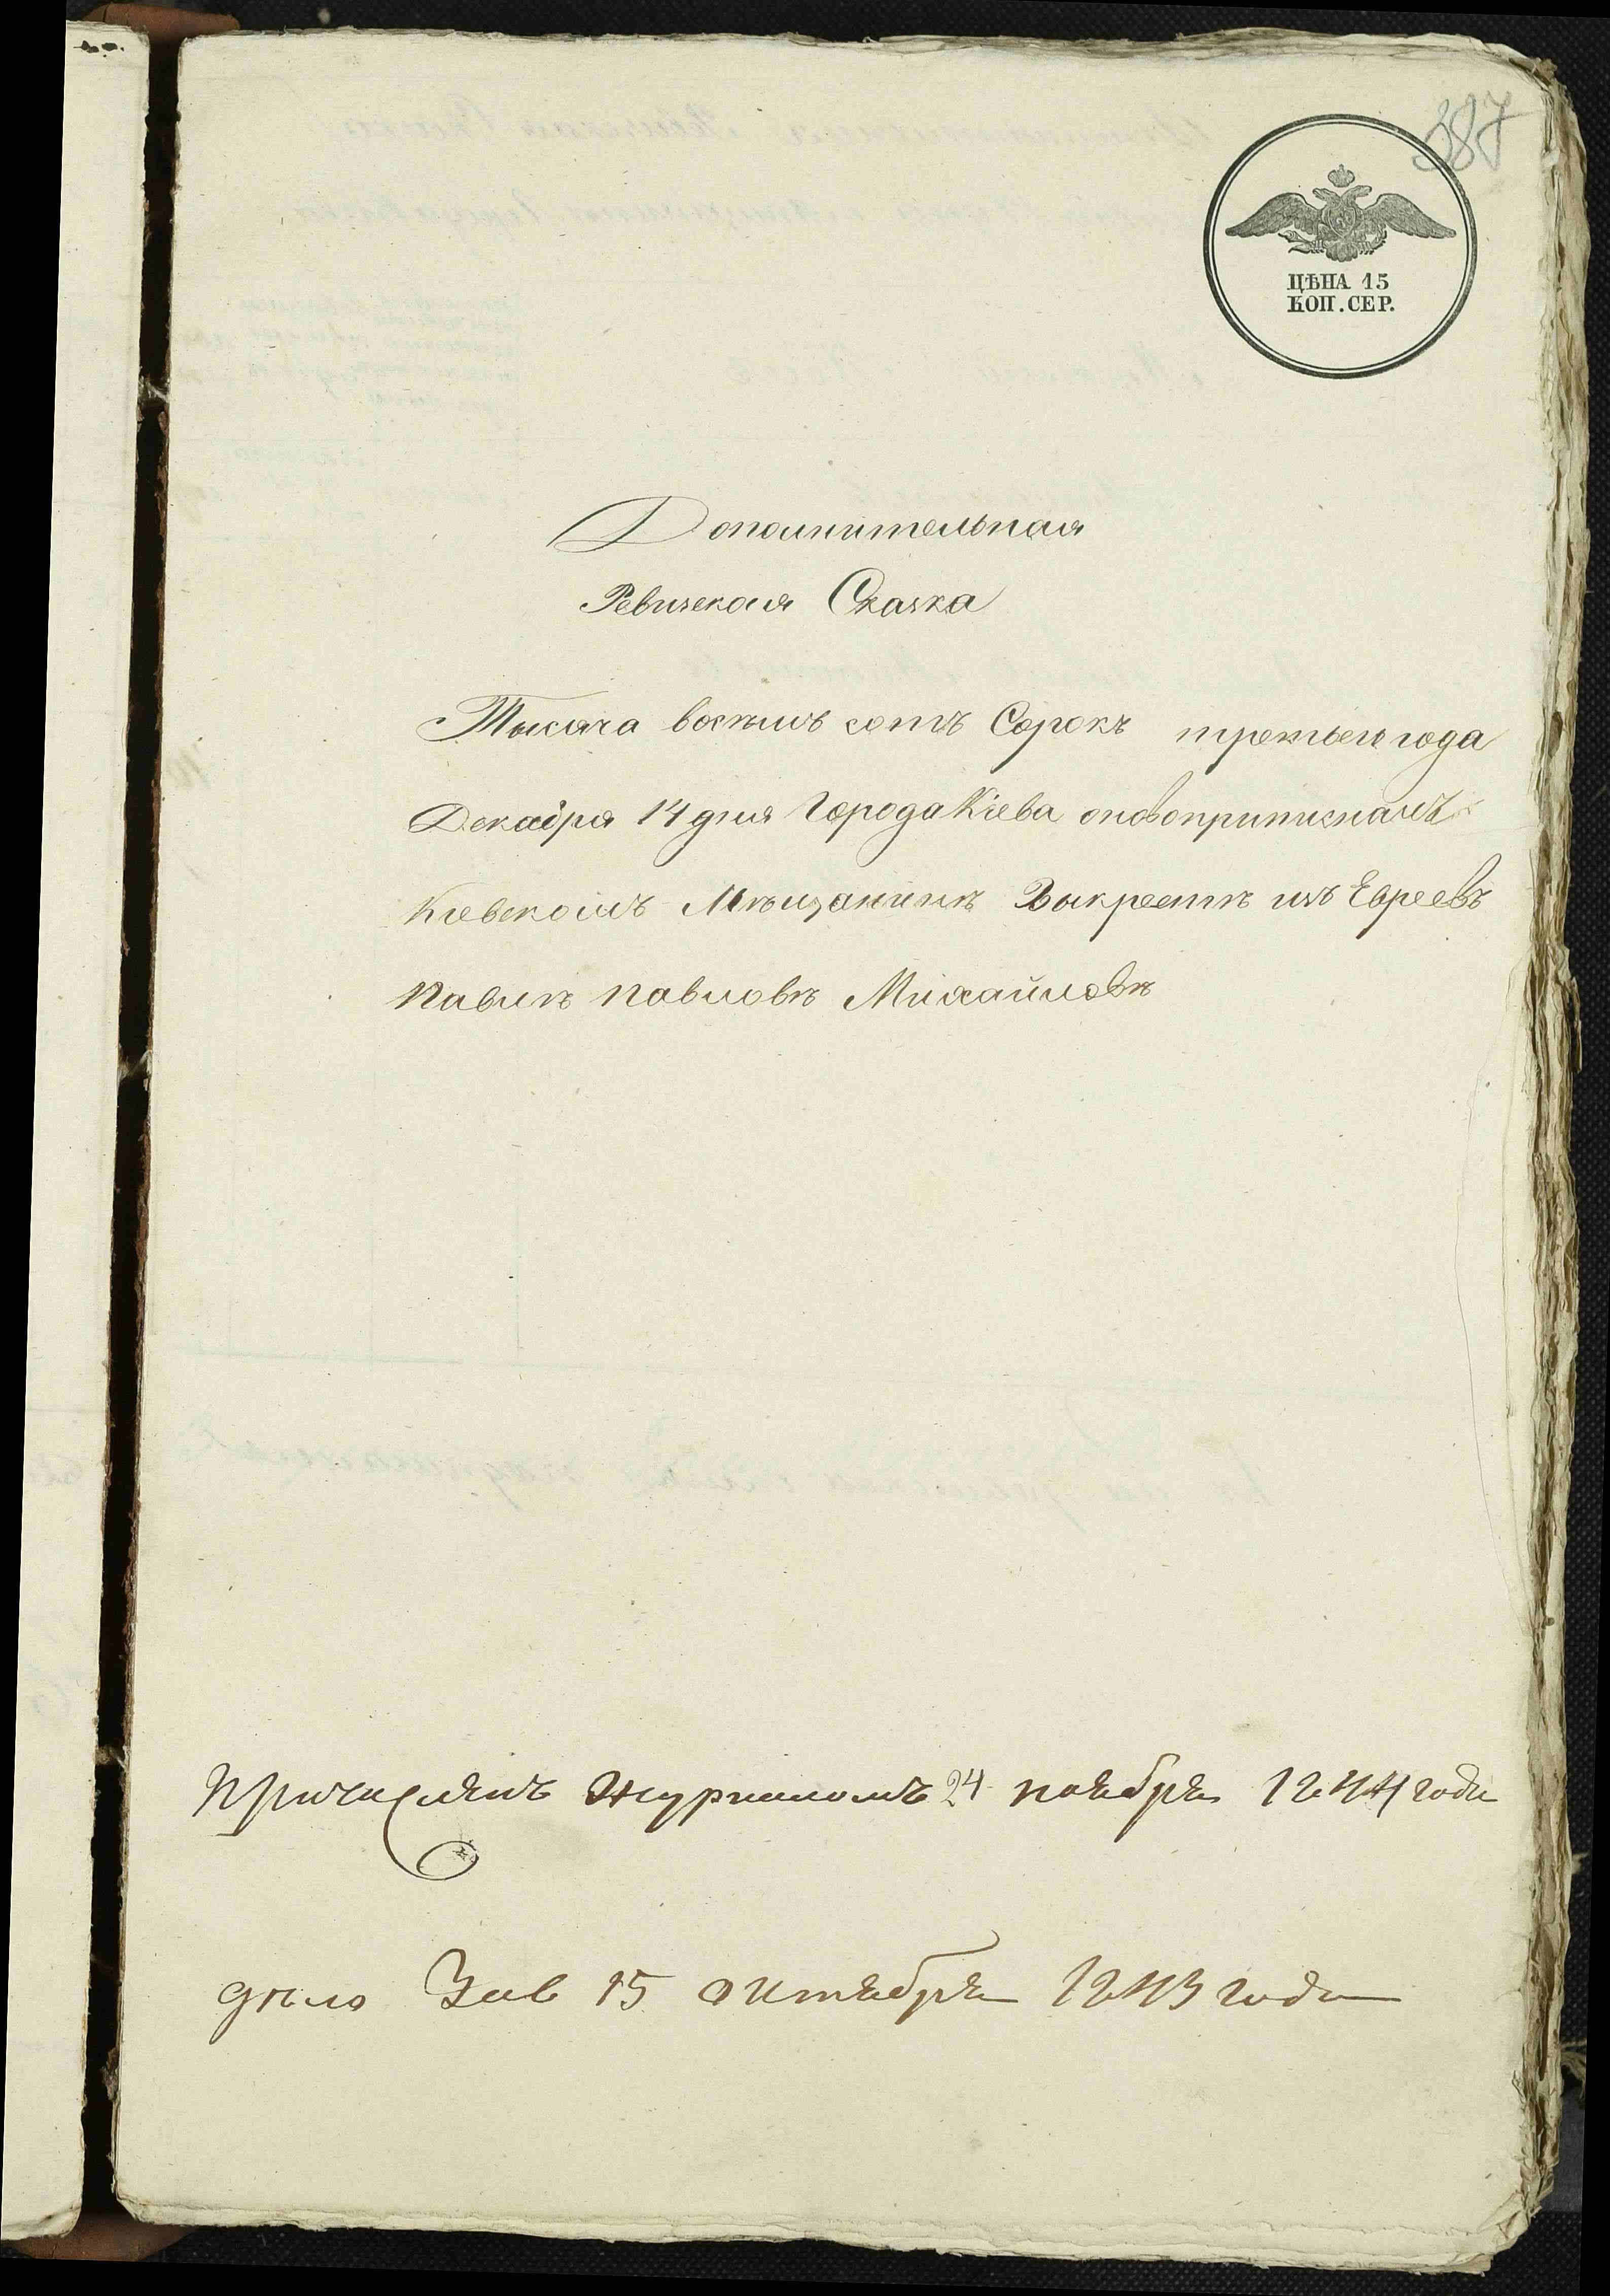 387
ЦѢНА 15
КОП. СЕР.
Дополнительная
Ревизская Сказка
Тысяча восѣмь сотъ Сорокъ третьего года
Декабря 14 дня Города Кіева оновоприписномъ
Кіевскомъ Мѣщанинѣ Выкрестѣ изъ Евреевъ
Павлѣ Павловѣ Михайловѣ
Причисленъ Журналомъ 24 ноября 1844 года
дѣло Зав 15 октября 1843 года